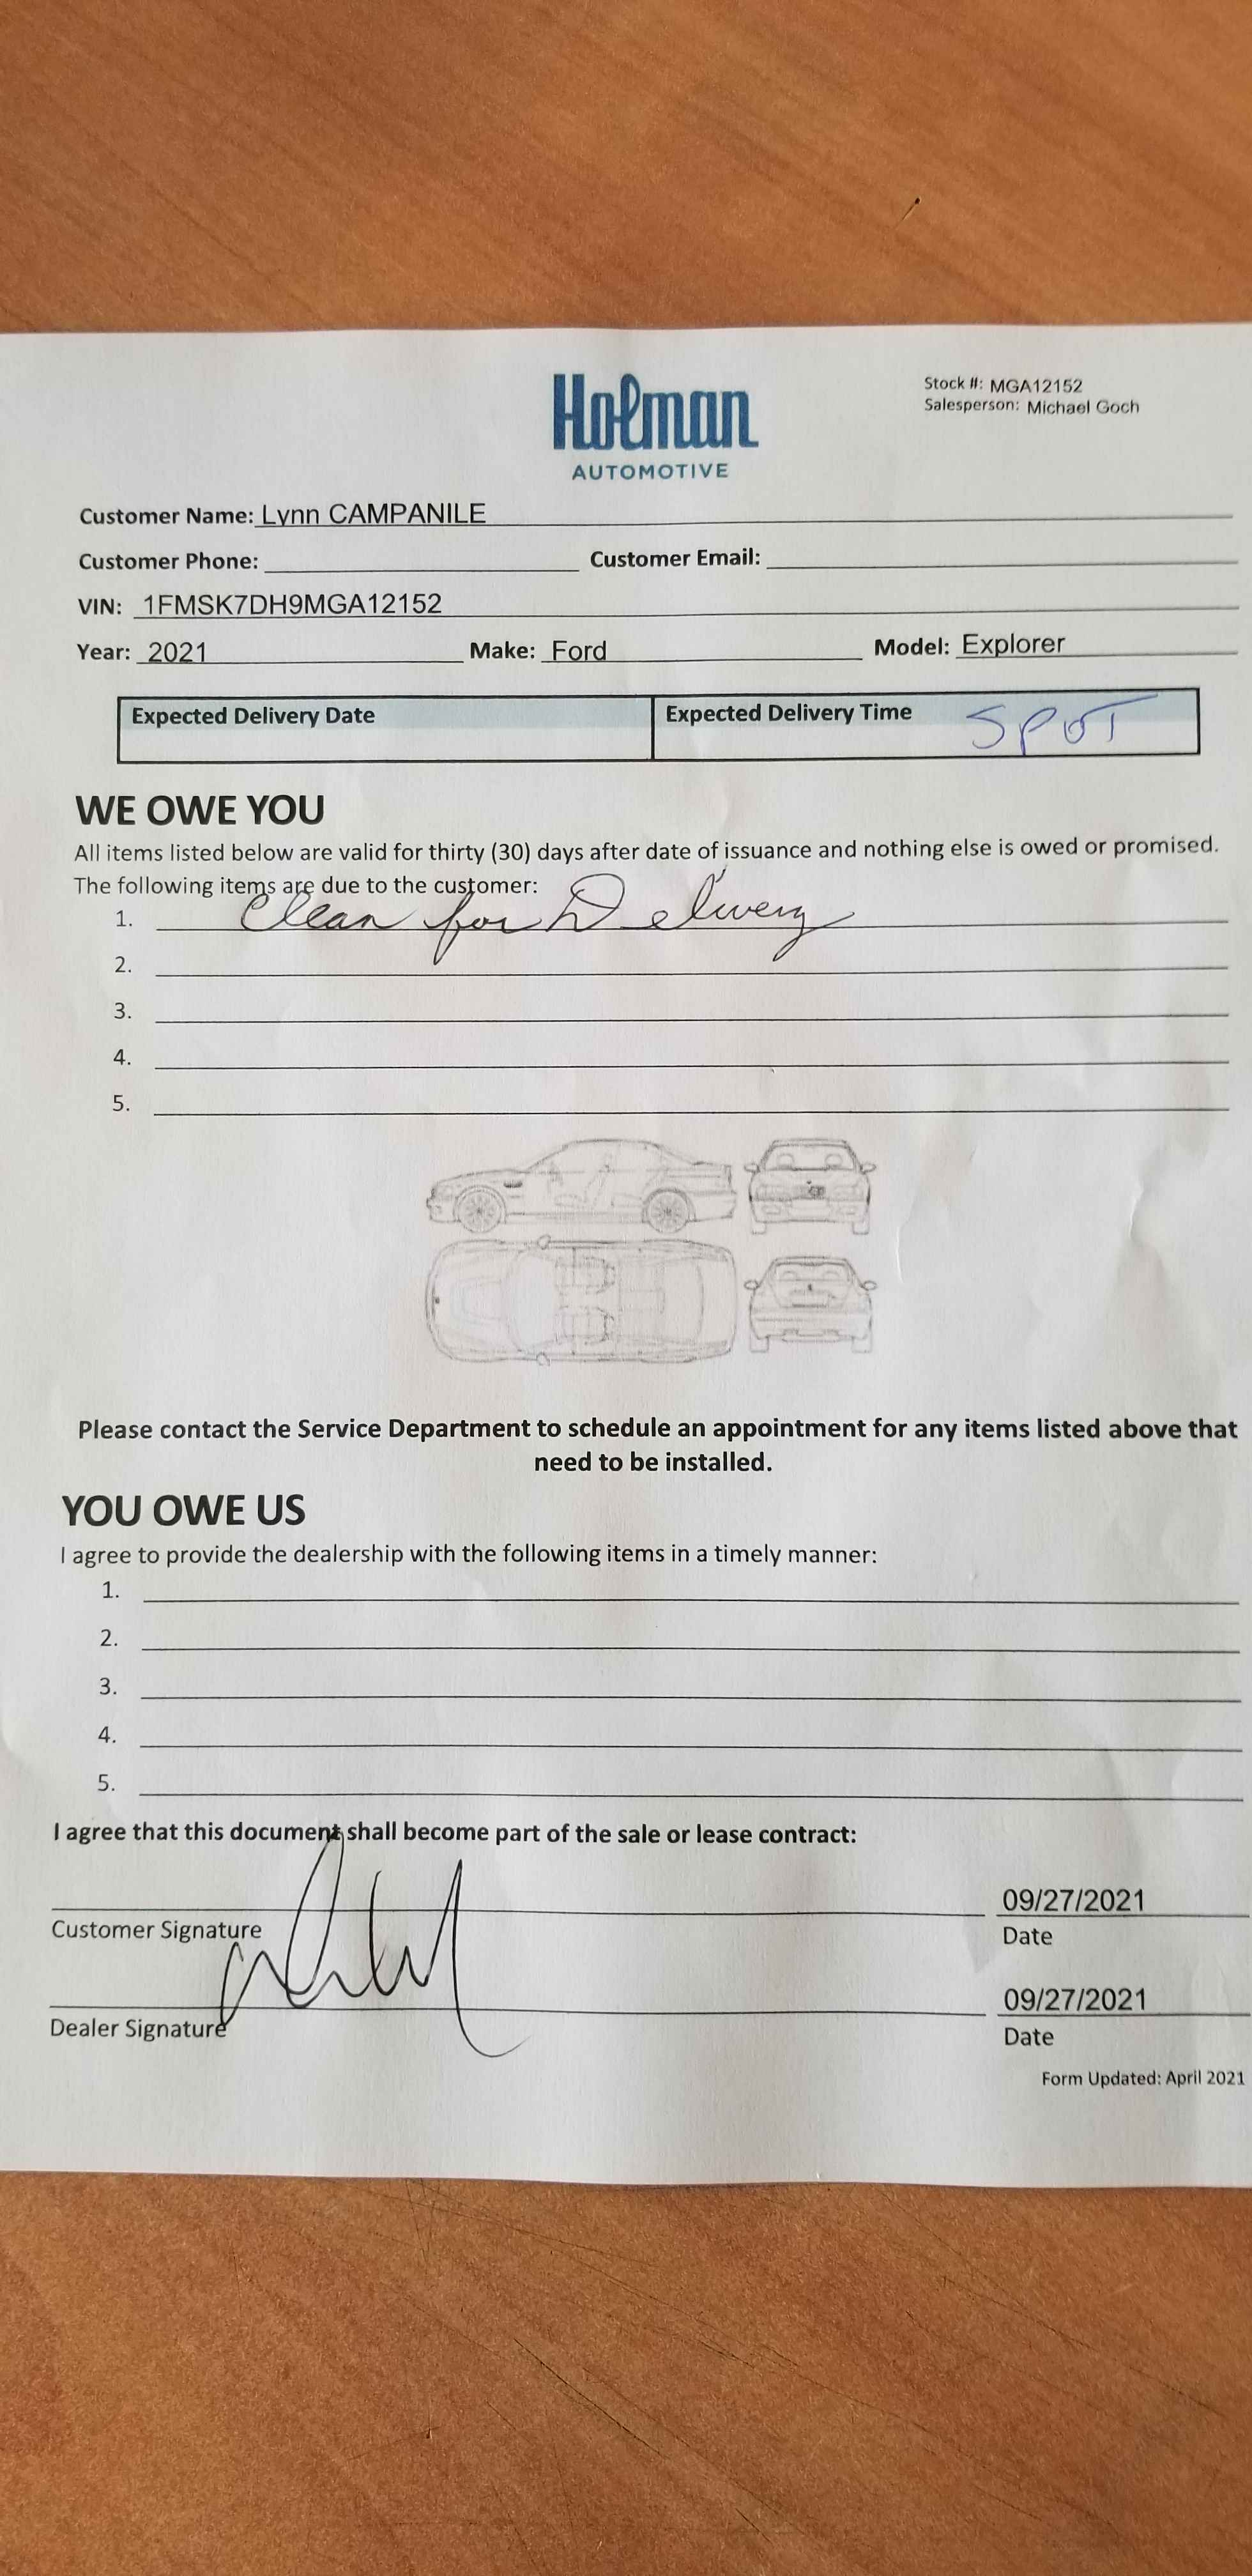 Holman
AUTOMOTIVE
Stock #: MGA12152
Salesperson: Michael Goch
Customer Name: Lynn CAMPANILE
Customer Phone: Customer Email:
VIN: 1FMSK7DH9MGA12152
Year: 2021 Make: Ford Model: Explorer
Expected Delivery Date Expected Delivery Time SPOT
WE OWE YOU
All items listed below are valid for thirty (30) days after date of issuance and nothing else is owed or promised.
The following items are due to the customer:
1. Clean for Delivery
2.
3.
4.
5.
Please contact the Service Department to schedule an appointment for any items listed above that
need to be installed.
YOU OWE US
I agree to provide the dealership with the following items in a timely manner:
1.
2.
3.
4.
5.
I agree that this document shall become part of the sale or lease contract:
09/27/2021
Customer Signature Date
09/27/2021
Dealer Signature Date
Form Updated: April 2021